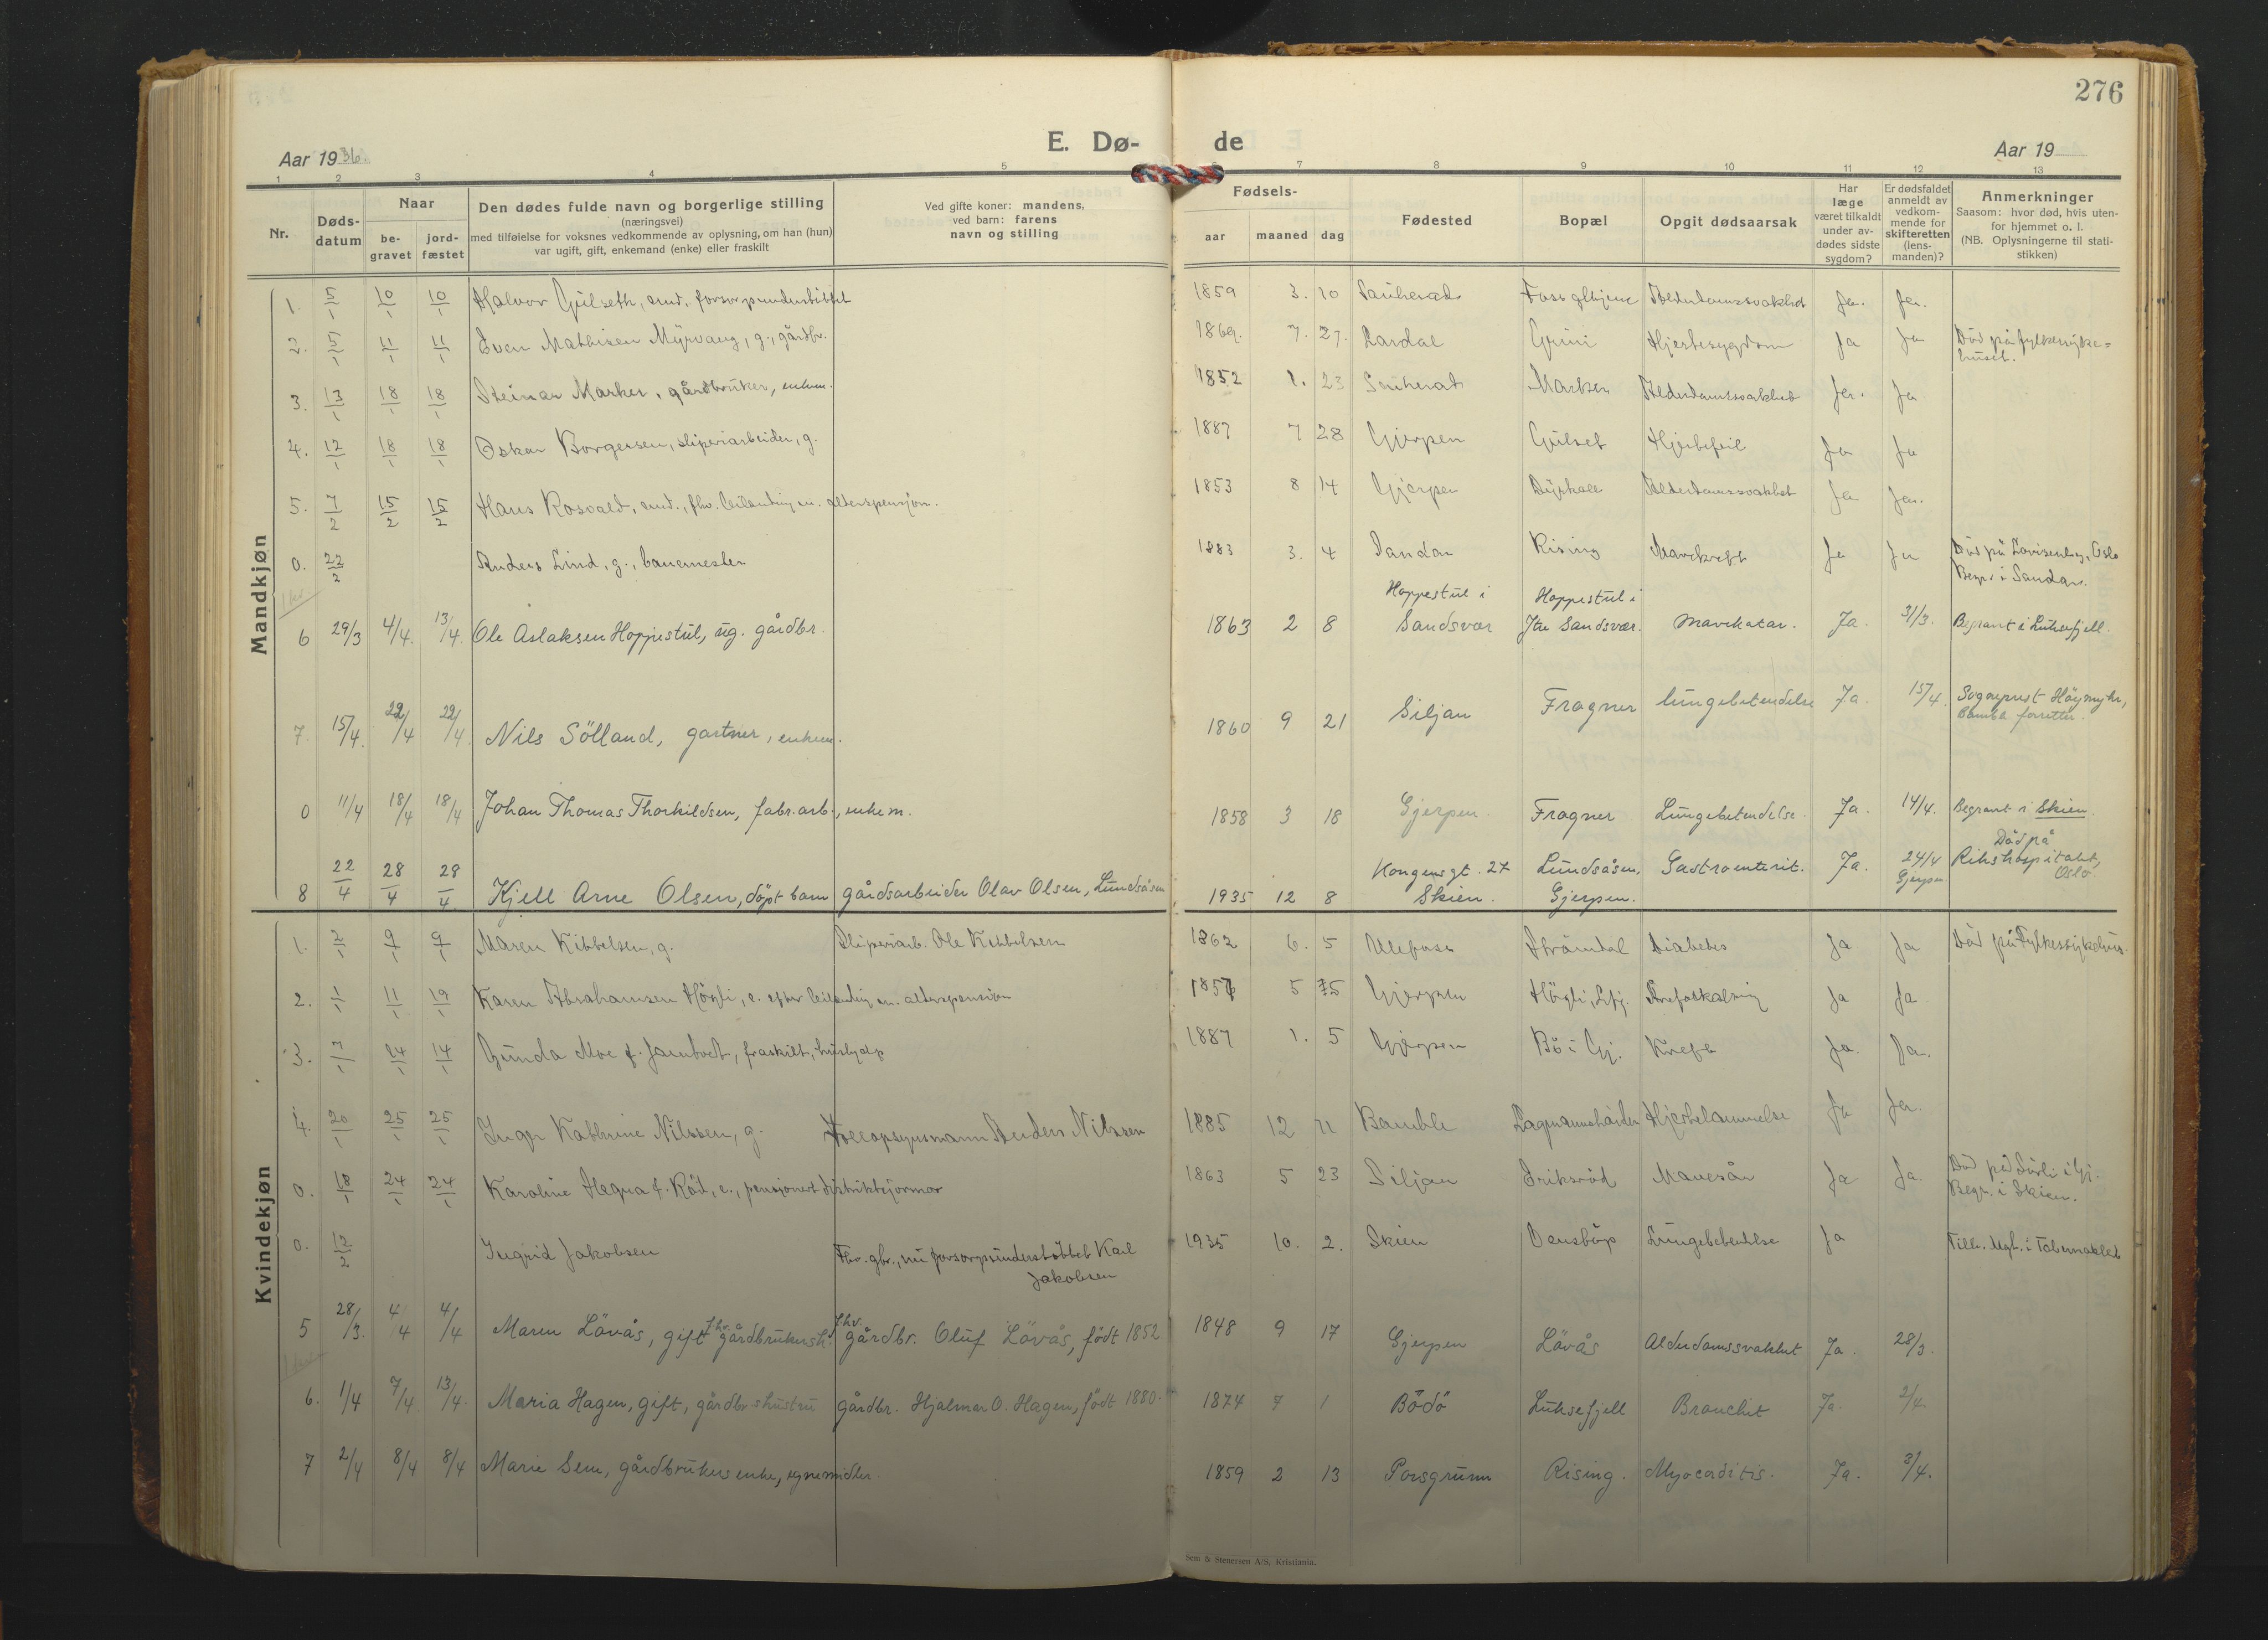 276
E. Dø- de
Aar 1936.
Aar 19
1 2 3 4 5 6 7 8 9 10 11 12 13
Nr.
Døds-
datum
Naar
be-
gravet
jord-
fæstet
Den dødes fulde navn og borgerlige stilling
(næringsvei)
med tilføielse for voksnes vedkommende av oplysning, om han (hun)
var ugift, gift, enkemand (enke) eller fraskilt
Ved gifte koner: mandens,
ved barn: farens
navn og stilling
Fødsels-
aar maaned dag
Fødested
Bopæl
Opgit dødsaarsak
Har
læge
været tilkaldt
under av-
dødes sidste
sygdom?
Er dødsfaldet
anmeldt av
vedkom-
mende for
skifteretten
(lens-
manden)?
Anmerkninger
Saasom: hvor død, hvis uten-
for hjemmet o. l.
(NB. Oplysningerne til stati-
stikken)
Mandkjøn
1. 5/1 10/1 10/1 Halvor Gulseth, forsorgsunderstöttet 1859 3. 10 Sauherad Alderdomssvakhet Ja. Ja.
2. 5/1 11/1 11/1 Even Mathisen Myrvang, g., gårdbr. 1869. 7. 27. Lardal Grini Hjertesygdom Ja Ja Död på fylkessyke=
huset.
3. 13/1 18/1 18/1 Steinar Marker, gårdbruker, enkem. 1852 1. 23 Sauherad Alderdomssvakhet Ja. Ja
4. 12/1 18/1 18/1 Oskar Borgersen, sliperiarbeider, g. 1887 7 28 Gjerpen Gulset Hjertefeil Ja Ja
5. 7/2 15/2 15/2 Hans Rosvald, fhv. alderspensjon. 1853 8 14 Gjerpen Alderdomssvakhet Ja Ja.
0. 22/2 Anders Lind, g., banemester 1883 3. 4 Sandar Rising Mavekreft Ja Ja Död på Lovisenberg, Oslo
Begr. i Sandar.
6 29/3 4/4. 13/4. Ole Aslaksen Hoppestul, ug. gårdbr. 1863 2 8 Hoppestul i
Sandsvær Hoppestul i
Ytre Sandsvær. Mavekatar. Ja. 31/3. Begravet i Luksefjell.
7. 15/4. 22/4 22/4. Nils Sölland, gartner, enkem. 1860 9 21 Siljan Fragner lungebetendelse Ja. 15/4. Sogneprest Höymyhr,
Bamble forretter.
0 11/4 18/4 18/4 Johan Thomas Thorkildsen, fabr.arb., enkem. 1858 3 18 Gjerpen. Fragner Lungebetendelse. Ja. 14/4. Begravt i Skien.
8 22/4 28/4 28/4. Kjell Arne Olsen, döpt barn gårdsarbeider Olav Olsen, Lundsåsen 1935 12 8 Kongensgt. 27
Skien. Lundsåsen,
Gjerpen. Gastroenterit. Ja. 24/4
Gjerpen Död på
Rikshospitalet,
Oslo.
Kvindekjøn
1. 2/1 9/1 9/1 Maren Kibbelsen, g. Sliperiarb. Ole Kibbelsen 1862 6. 5 Ulefoss Strömdal Diabetes Ja Ja Död på Fylkessykehus.
2. 1/1 11/1 19/1 Karen Abrahamsen Högli, e. efter alderspensjon 1857 5 Gjerpen Högli, Lfj. Åreforkalkning Ja Ja
3. 7/1 14/1 14/1 Gunda Moe f. Jarnbodt, fraskilt, hushjelp 1887 1. 5 Gjerpen Bö i Gj. Kreft Ja. Ja.
4. 20/1 25/1 25/1 Inger Kathrine Nilssen, g. Anders Nilssen 1885 12 11 Bamble Hjertelammelse Ja Ja.
0. 18/1 24/1 24/1 Karoline Hegna f. Röd, e., pensjonert distriktsjormor 1863 5 23 Siljan Eriksröd Mavesår Ja Ja. Död på i Gj.
Begr. i Skien.
0. 12/2 Ingrid Jakobsen Fhv. gbr., nu forsorgsunderstöttet Karl
Jakobsen 1935 10. 2. Skien Lungebetendelse Ja Tilh. mgh. i Tabernaklet
5 28/3. 4/4 4/4 Maren Lövås, gift fhv. gårdbrukersh. fhv. gårdbr. Oluf Lövås, födt 1852 1848 9 17 Gjerpen Lövås Alderdomssvakhet Ja. 28/3.
6. 1/4 7/4. 13/4. Maria Hagen, gift, gårdbrshustru gårdbr. Hjalmar O. Hagen, födt 1880. 1874 7 1 Bodö Luksefjell Bronchit Ja. 2/4.
7 2/4 8/4 8/4 Marie Sem, gårdbrukers enke, egne midler. 1859 2 13 Porsgrunn Rising. Myocarditis. Ja. 3/4.
Sem & Stenersen A/S, Kristiania.